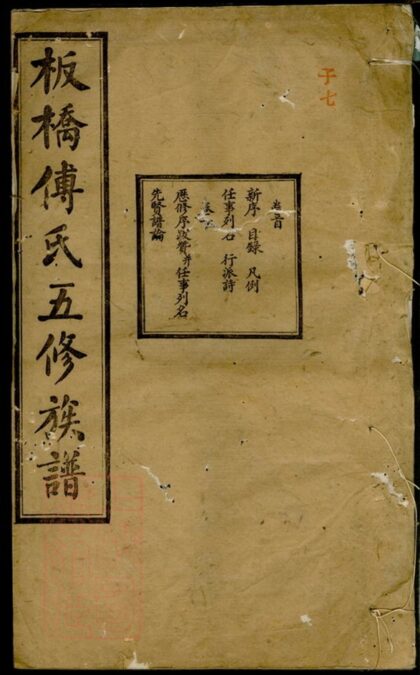 于七
卷首
新序 目錄 凡例
任事列名 行派詩
卷
歷修序跋贊并任事列名
先賢譜論
板橋傅氏五修族譜